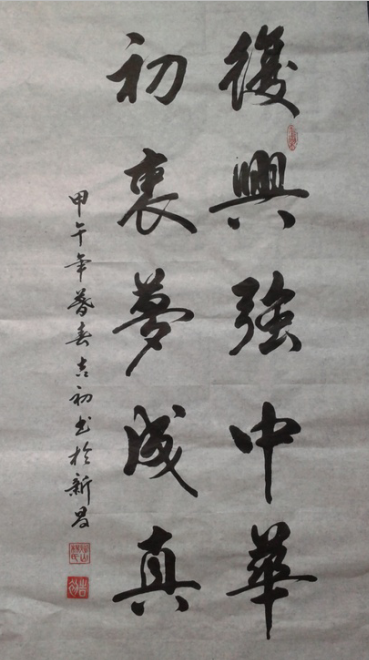 復興強中華
初衷夢成真
甲午年暮春吉初书於新昌